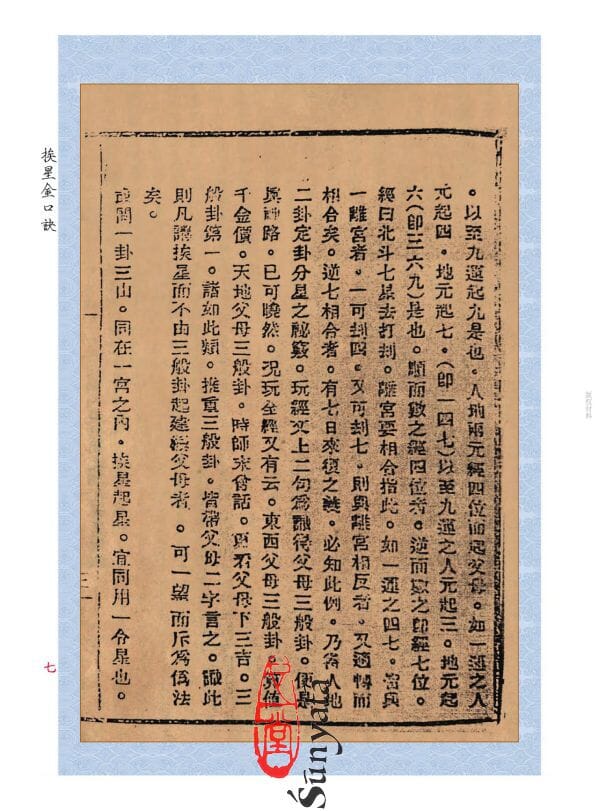 。以至九運起九是也。人地兩元經四位而起父母。如一運之人
元起四。地元起七。(卽一四七)以至九運之人元起三。地元起
六(卽三六九)是也。順而數之經四位者。逆而數之卽經七位。
經曰北斗七星去打刦。離宮要相合指此。如一運之四七。當與
一離宮者。一可刦四。又可刦七。則與離宮相反者。又適轉而
相合矣。逆七相合者。有七日來復之義。必知此例。乃爲人地
二卦定卦分星之秘竅。玩經文上二句爲識得父母三般卦。便是
眞神路。已可曉然。況玩全經又有云。東西父母三般卦。算値
千金價。天地父母三般卦。時師未曾話。更看父母下三吉。三
般卦第一。諸如此類。推重三般卦。皆帶父母二字言之。識此
則凡講挨星而不由三般卦起達父母者。可一望而斥爲僞法
矣。
或問一卦三山。同在一宮之內。挨星起星。宜同用一令星也。
挨星金口訣
一
七
Śūnyatā